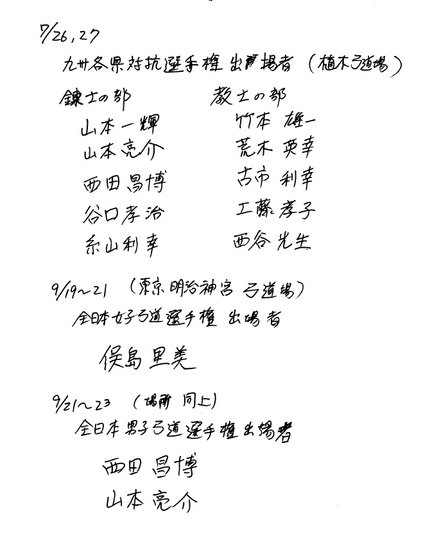 7/26,27
九州各県対抗選手権 出場者 (植木弓道場)
錬士の部 教士の部
山本一輝 竹本 雄一
山本亮介 荒木 英幸
西田昌博 古市 利幸
谷口孝治 工藤孝子
糸山利幸 西谷先生
9/19~21 (東京明治神宮 弓道場)
全日本女子弓道選手権 出場者
俣島里美
9/21~23 (場所 同上)
全日本男子弓道選手権出場者
西田 昌博
山本亮介